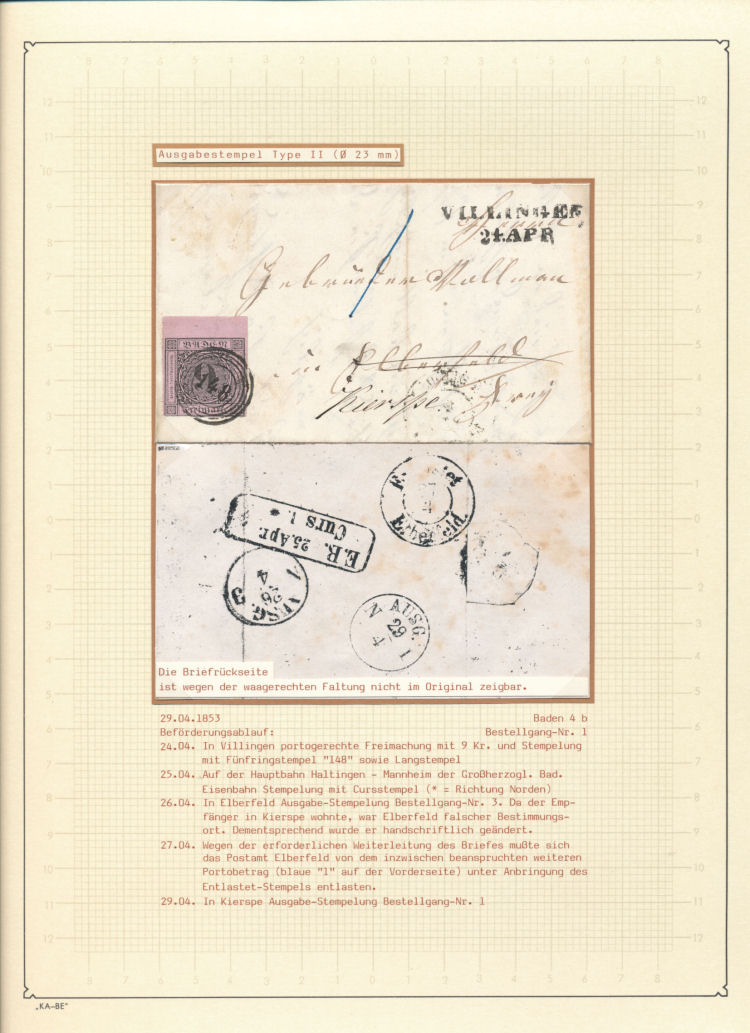 Ausgabestempel Type II (Ø 23 mm)
VILLINGEN
24.APR
Gebrüder Mollman
in Elberfeld
Kierspe frey
BADEN
148
Freimarke
Elberfeld.
E.B. 25.Apr.
Curs 1. *
AUSG. 3
26
4
N AUSG. 1
29
4
Die Briefrückseite
ist wegen der waagerechten Faltung nicht im Original zeigbar.
29.04.1853 Baden 4 b
Beförderungsablauf: Bestellgang-Nr. 1
24.04. In Villingen portogerechte Freimachung mit 9 Kr. und Stempelung
mit Fünfringstempel "148" sowie Langstempel
25.04. Auf der Hauptbahn Haltingen - Mannheim der Großherzogl. Bad.
Eisenbahn Stempelung mit Cursstempel (* = Richtung Norden)
26.04. In Elberfeld Ausgabe-Stempelung Bestellgang-Nr. 3. Da der Emp-
fänger in Kierspe wohnte, war Elberfeld falscher Bestimmungs-
ort. Dementsprechend wurde er handschriftlich geändert.
27.04. Wegen der erforderlichen Weiterleitung des Briefes mußte sich
das Postamt Elberfeld von dem inzwischen beanspruchten weiteren
Portobetrag (blaue "1" auf der Vorderseite) unter Anbringung des
Entlastet-Stempels entlasten.
29.04. In Kierspe Ausgabe-Stempelung Bestellgang-Nr. 1
„KA-BE"